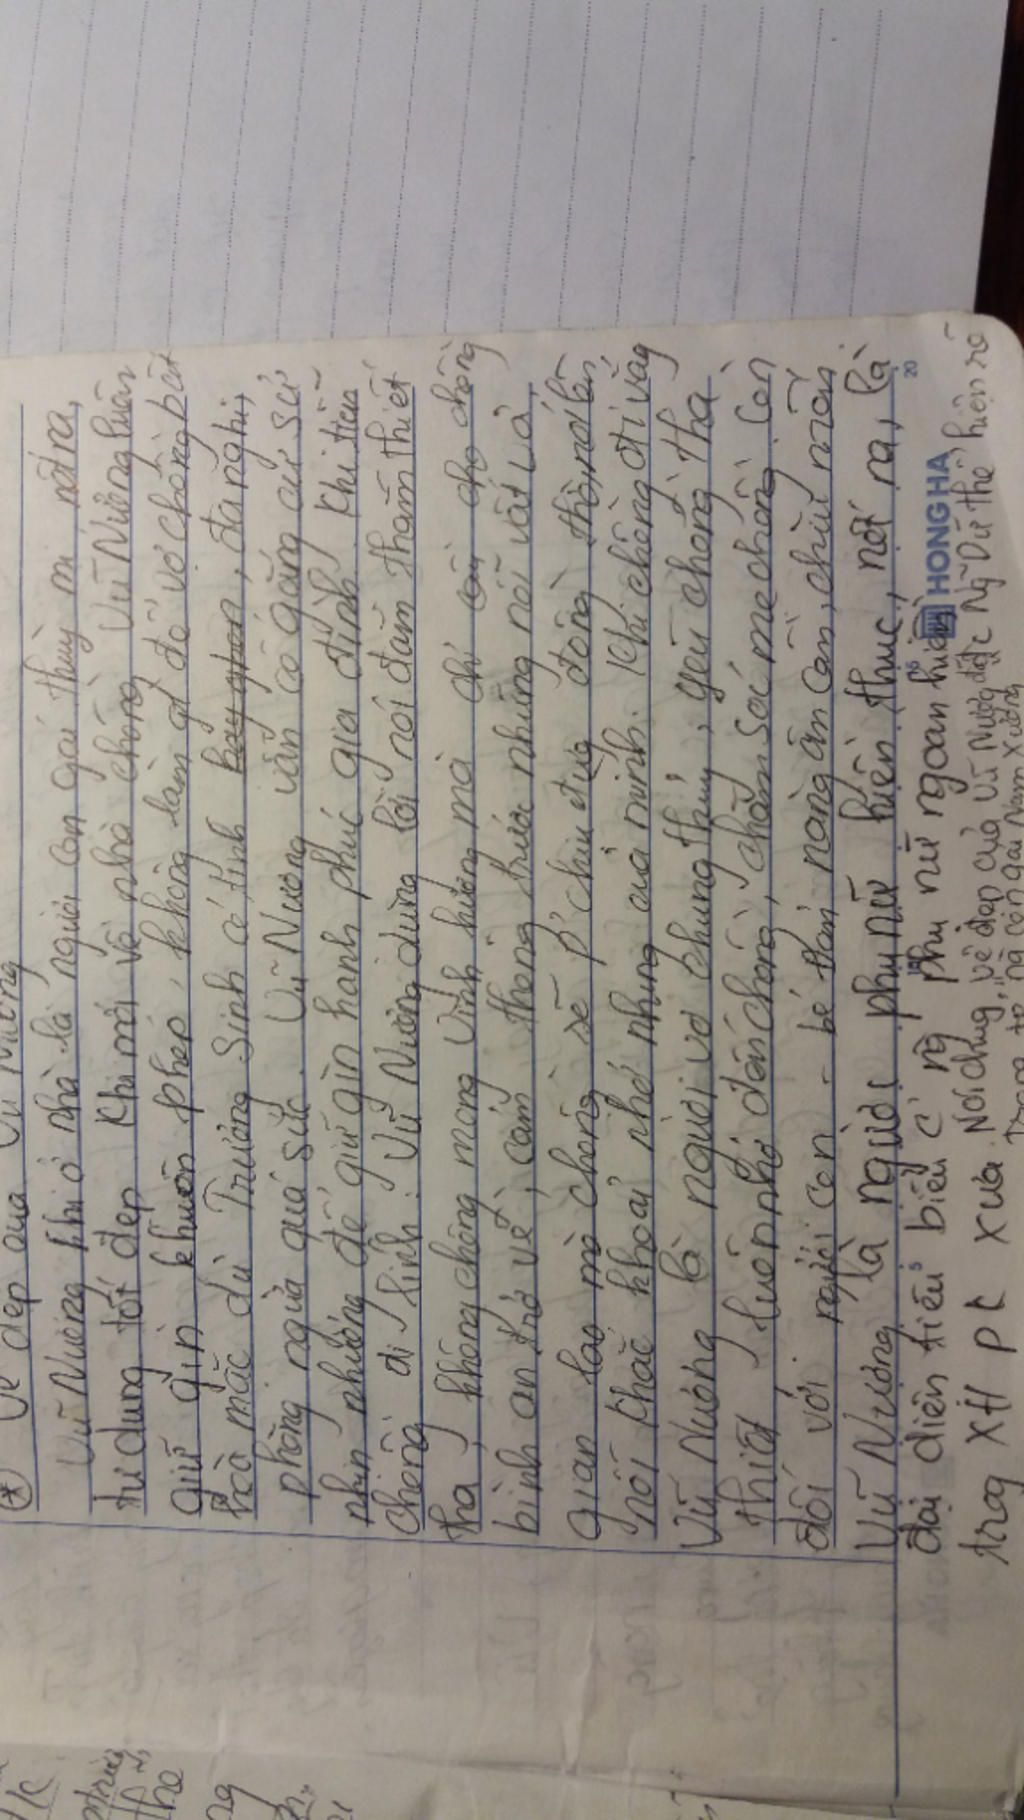 * Vẻ đẹp của Vũ Nương
Vũ Nương khi ở nhà là người con gái thùy mị, nết na,
tư dung tốt đẹp. Khi mới về nhà chồng Vũ Nương luôn
giữ gìn khuôn phép, không làm gì để vợ chồng bất
hoà mặc dù Trương Sinh có tính hay ghen, đa nghi,
phòng ngừa quá sức. Vũ Nương vẫn cố gắng cư sử
nhịn nhường để giữ gìn hạnh phúc gia đình. Khi tiễn
chồng đi lính. Vũ Nương dùng lời nói đằm thắm thiết
tha, không chông mong vinh hương mà chỉ cầu cho chồng
bình an trở về, cảm thông trước những nỗi vất vả,
gian lao mà chồng sẽ p' chịu đựng đồng thời, nói lên
nỗi khắc khoải nhớ nhung của mình. Khi chồng đi vắng
Vũ Nương là người vợ chung thủy, yêu chồng tha
thiết, luôn nhớ đến chồng, chăm sóc mẹ chồng. Còn
đối với người con - bé Đản, nàng ân cần, chìu mến
Vũ Nương là người phụ nữ hiền thục, nết na, là
đại diện tiêu biểu c' ng phụ nữ ngoan hiền
trog XH PK xưa. Nói chung, vẻ đẹp của Vũ Nương đc Ng Dữ thể hiện rõ
trong tp ng con gái Nam Xương
HONG HA
20